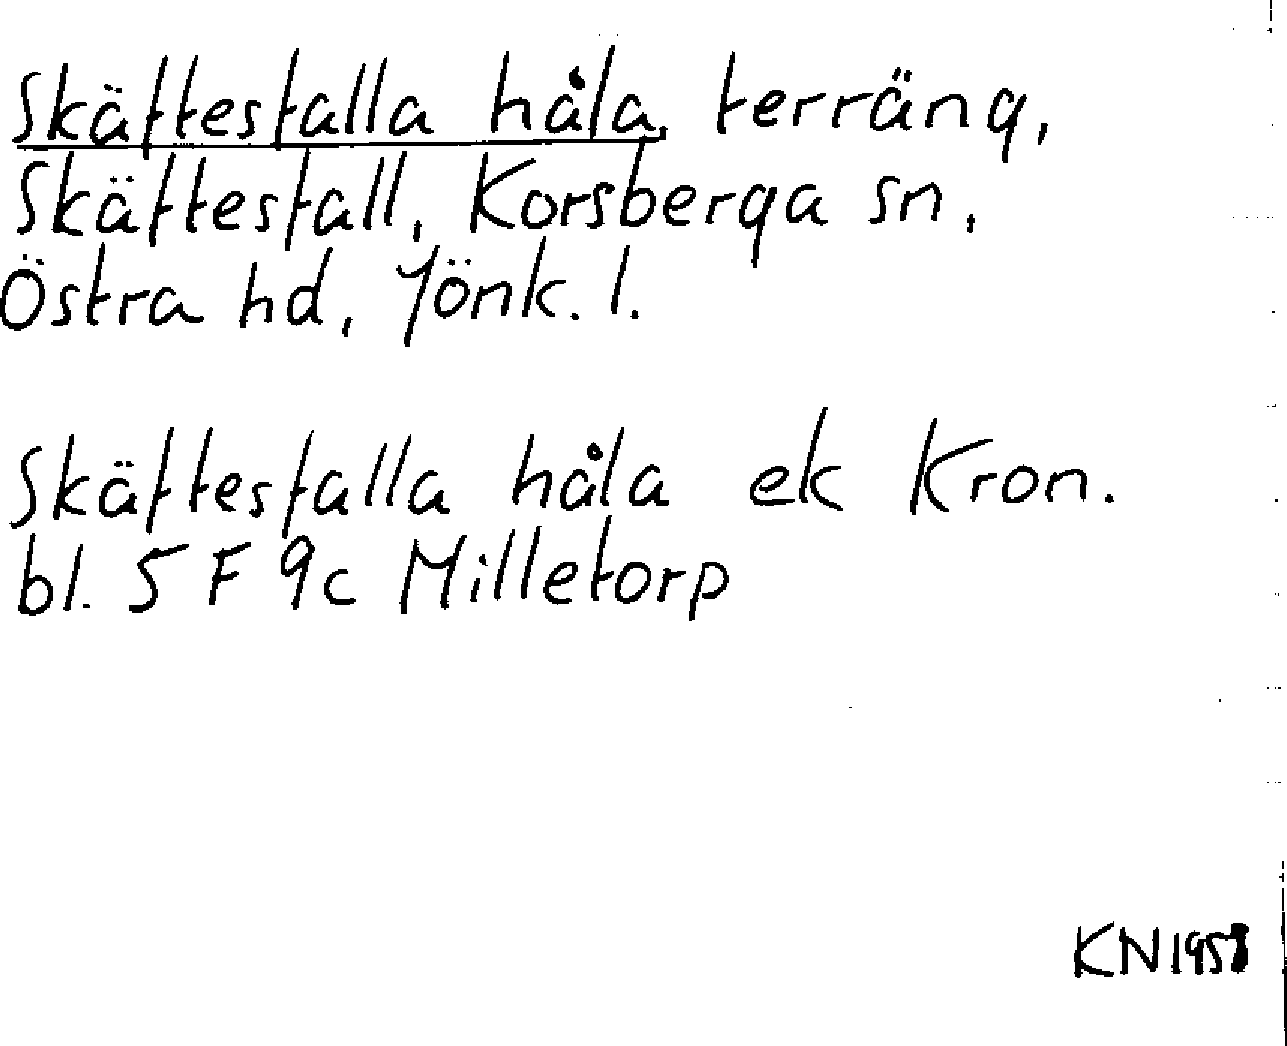 Skäftesfalla håla, terräng,
Skäftesfall, Korsberga sn,
Östra hd, Jönk. l.
Skäftesfalla håla ek Kron.
bl. 5 F 9c Milletorp
KN